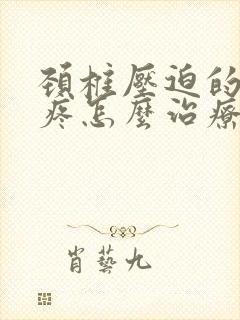 頸柱壓迫的
疼怎麼治療
肖藝九